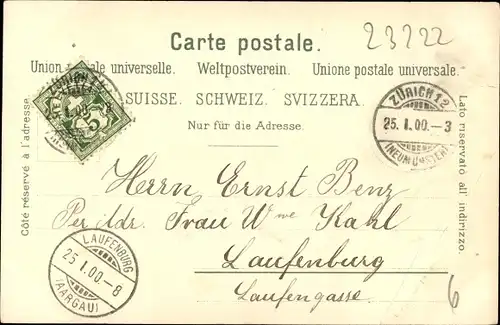 Carte postale.
23222
Union postale universelle. Weltpostverein. Unione postale universale.
SUISSE. SCHWEIZ. SVIZZERA.
Nur für die Adresse.
Côté réservé à l'adresse.
Lato riservato all' indirizzo.
ZÜRICH 12
25. I. 00. - 3
(NEUMÜNSTER)
5
Herrn Ernst Benz
Per Adr. Frau Wwe Kahl
Laufenburg
Laufengasse.
LAUFENBURG
25 I. 00. - 8
(AARGAU)
6